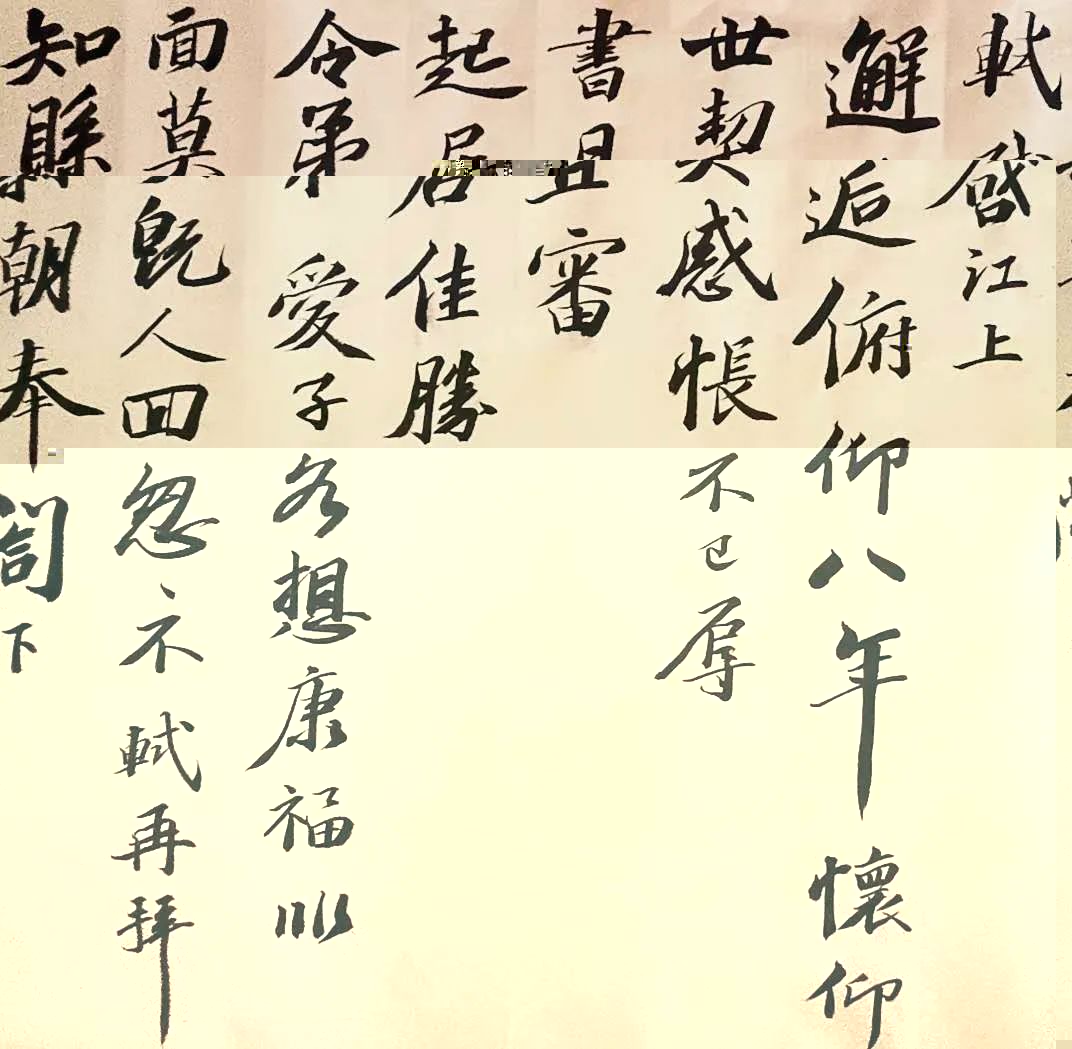 軾啓江上
邂逅俯仰八年懷仰
世契感悵不已辱
書且審
起居佳勝
令弟愛子各想康福
面莫既人回忽不軾再拜
知縣朝奉閤下